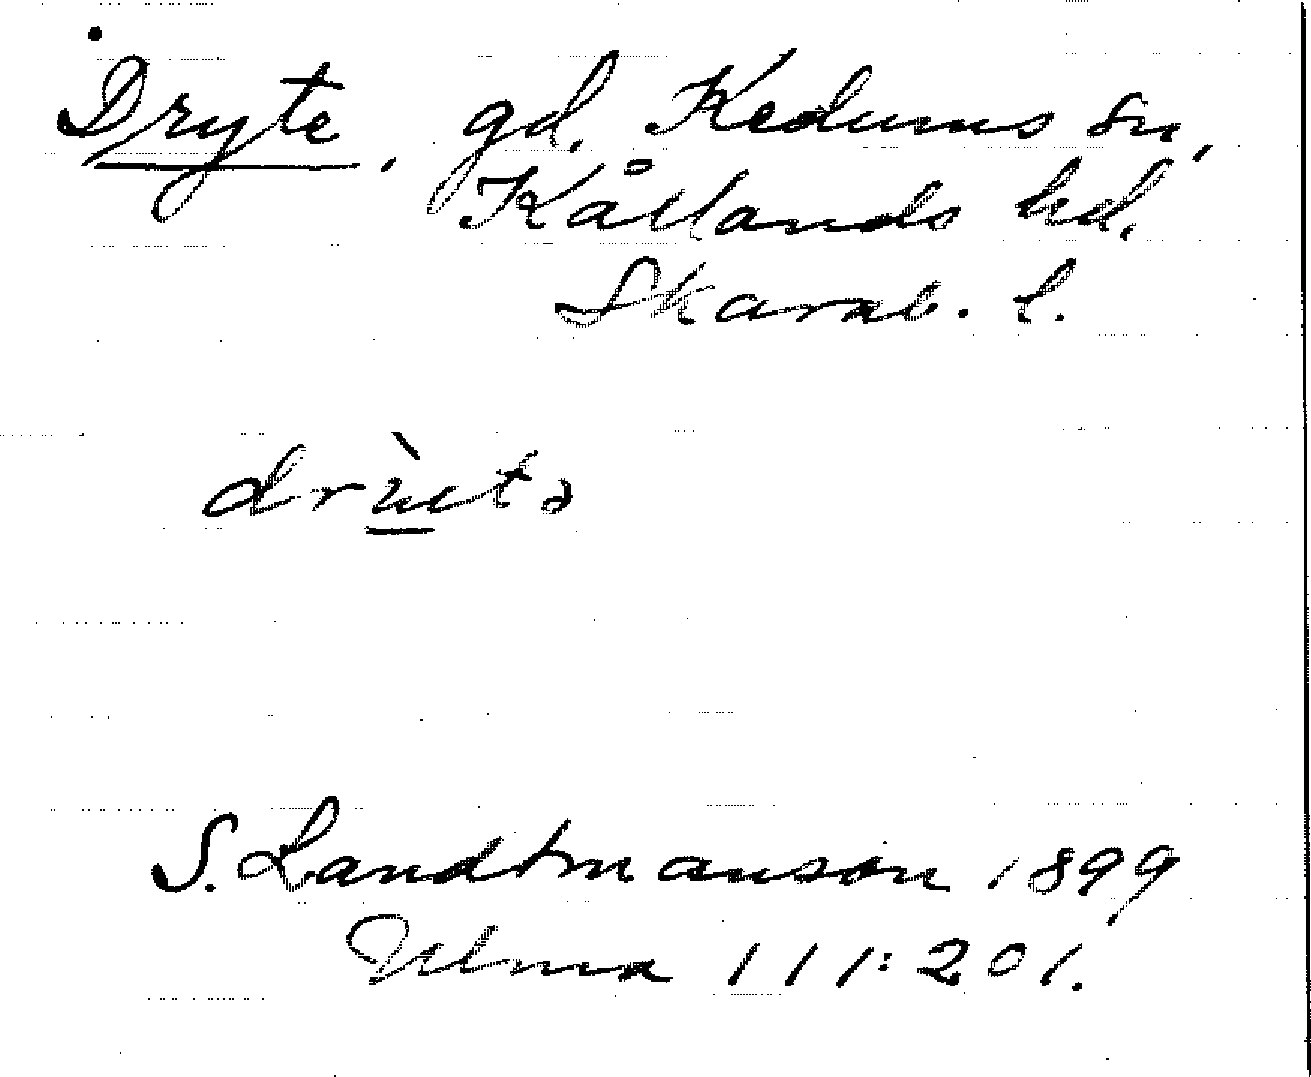 Dryte, gd. Kedums sn,
Kållands hd.
Skarab. l.
drùetə
S. Landtmanson 1899
Ulma 111:201.